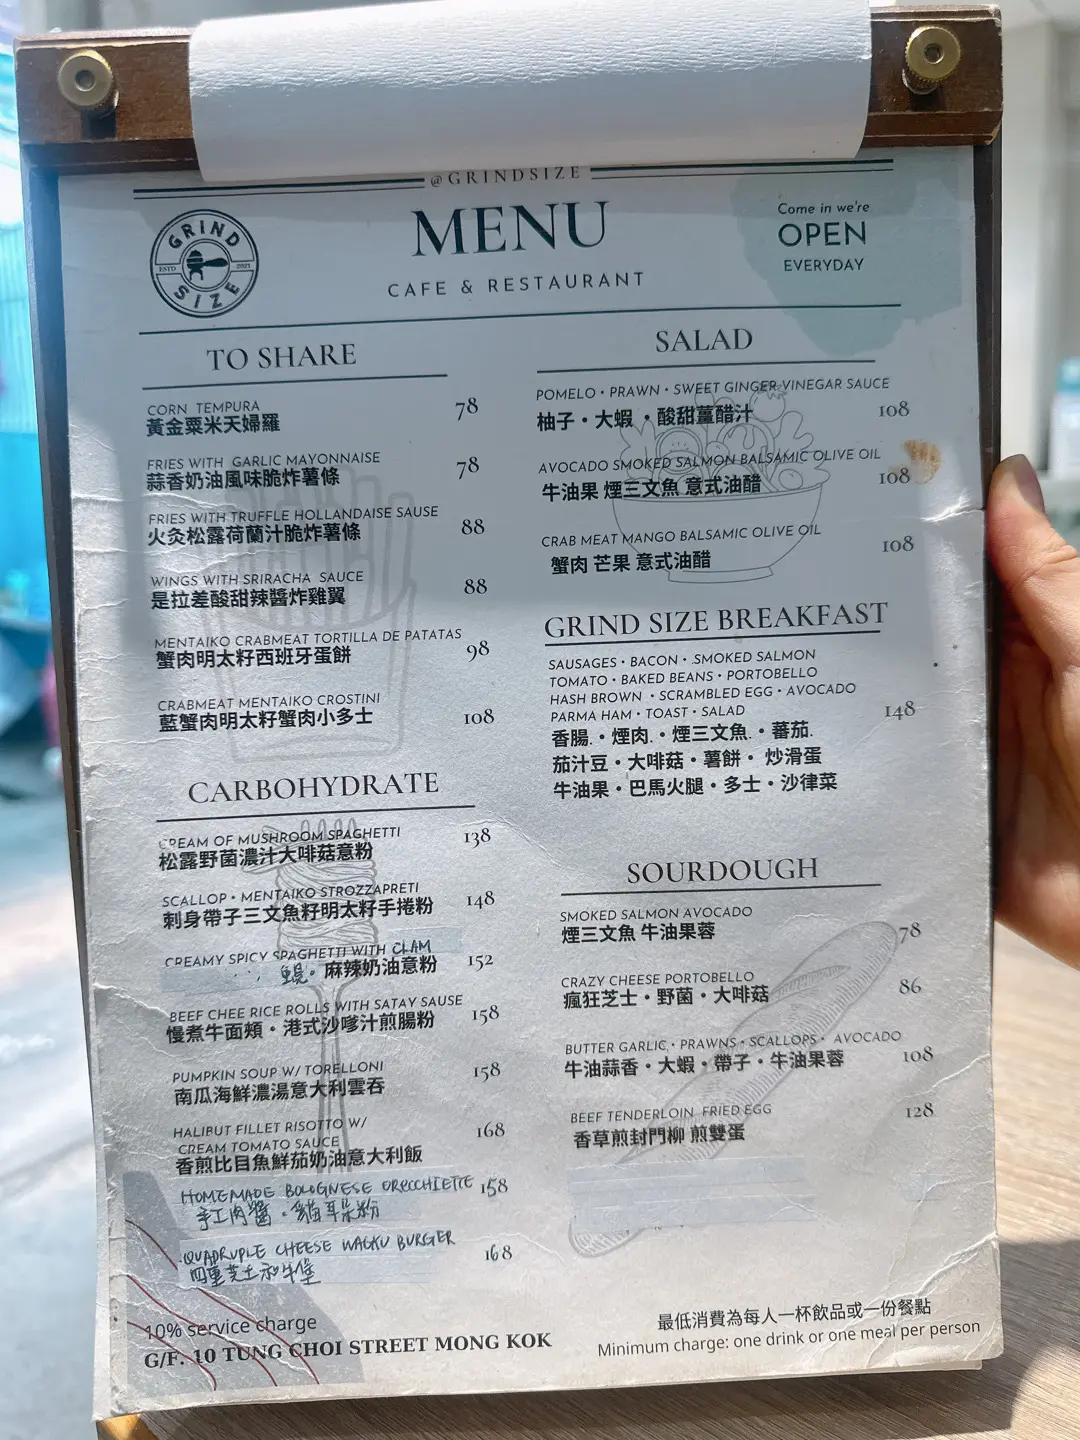 @GRINDSIZE
MENU
CAFE & RESTAURANT
GRIND
ESTD 2021
SIZE
Come in we're
OPEN
EVERYDAY
TO SHARE
CORN TEMPURA
黃金粟米天婦羅 78
FRIES WITH GARLIC MAYONNAISE
蒜香奶油風味脆炸薯條 78
FRIES WITH TRUFFLE HOLLANDAISE SAUSE
火灸松露荷蘭汁脆炸薯條 88
WINGS WITH SRIRACHA SAUCE
是拉差酸甜辣醬炸雞翼 88
MENTAIKO CRABMEAT TORTILLA DE PATATAS
蟹肉明太籽西班牙蛋餅 98
CRABMEAT MENTAIKO CROSTINI
藍蟹肉明太籽蟹肉小多士 108
CARBOHYDRATE
CREAM OF MUSHROOM SPAGHETTI
松露野菌濃汁大啡菇意粉 138
SCALLOP • MENTAIKO STROZZAPRETI
刺身帶子三文魚籽明太籽手捲粉 148
CREAMY SPICY SPAGHETTI WITH CLAM
蜆。麻辣奶油意粉 152
BEEF CHEE RICE ROLLS WITH SATAY SAUSE
慢煮牛面頰・港式沙嗲汁煎腸粉 158
PUMPKIN SOUP W/ TORELLONI
南瓜海鮮濃湯意大利雲吞 158
HALIBUT FILLET RISOTTO W/
CREAM TOMATO SAUCE
香煎比目魚鮮茄奶油意大利飯 168
HOMEMADE BOLOGNESE ORECCHIETTE 158
手工肉醬・貓耳朵粉
QUADRUPLE CHEESE WAGYU BURGER 168
四重芝士和牛堡
10% service charge
G/F. 10 TUNG CHOI STREET MONG KOK
SALAD
POMELO • PRAWN • SWEET GINGER VINEGAR SAUCE
柚子・大蝦・酸甜薑醋汁 108
AVOCADO SMOKED SALMON BALSAMIC OLIVE OIL
牛油果 煙三文魚 意式油醋 108
CRAB MEAT MANGO BALSAMIC OLIVE OIL
蟹肉 芒果 意式油醋 108
GRIND SIZE BREAKFAST
SAUSAGES • BACON • .SMOKED SALMON
TOMATO • BAKED BEANS • PORTOBELLO
HASH BROWN • SCRAMBLED EGG • AVOCADO
PARMA HAM • TOAST • SALAD 148
香腸.・煙肉.・煙三文魚.・蕃茄.
茄汁豆・大啡菇・薯餅・ 炒滑蛋
牛油果・巴馬火腿・多士・沙律菜
SOURDOUGH
SMOKED SALMON AVOCADO
煙三文魚 牛油果蓉 78
CRAZY CHEESE PORTOBELLO
瘋狂芝士・野菌・大啡菇 86
BUTTER GARLIC • PRAWNS • SCALLOPS • AVOCADO
牛油蒜香・大蝦・帶子・牛油果蓉 108
BEEF TENDERLOIN FRIED EGG
香草煎封門柳 煎雙蛋 128
最低消費為每人一杯飲品或一份餐點
Minimum charge: one drink or one meal per person